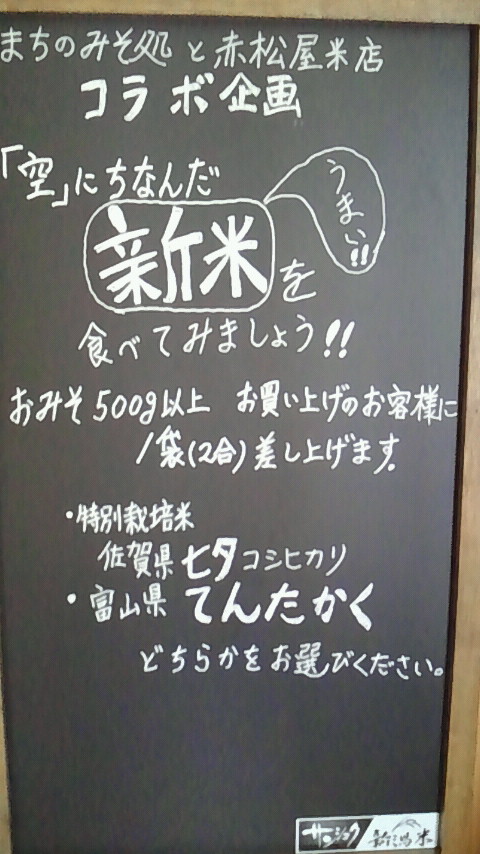 まちのみそ処と赤松屋米店
コラボ企画
「空」にちなんだ
うまい!!
新米を
食べてみましょう!!
おみそ500g以上 お買い上げのお客様に
1袋(2合)差し上げます。
・特別栽培米
佐賀県七夕コシヒカリ
・富山県 てんたかく
どちらかをお選びください。
サンショク
新潟米